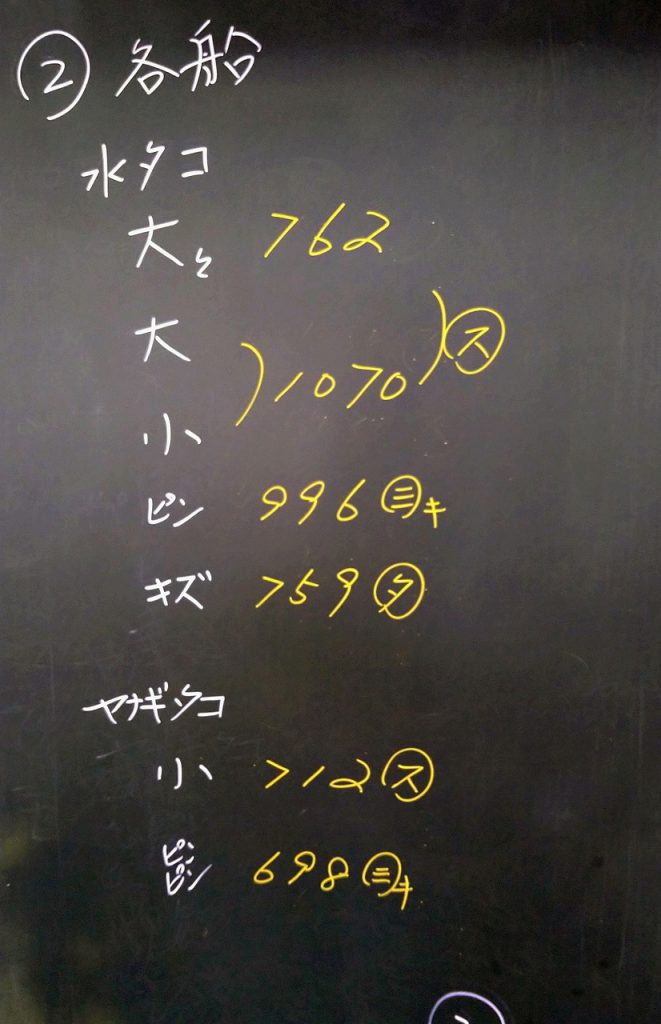 ② 各船
水タコ
大々 762
大
)1070)㋜
小
ピン 996㋯キ
キズ 759㋟
ヤナギタコ
小 712㋜
ピンピン 698㋯キ